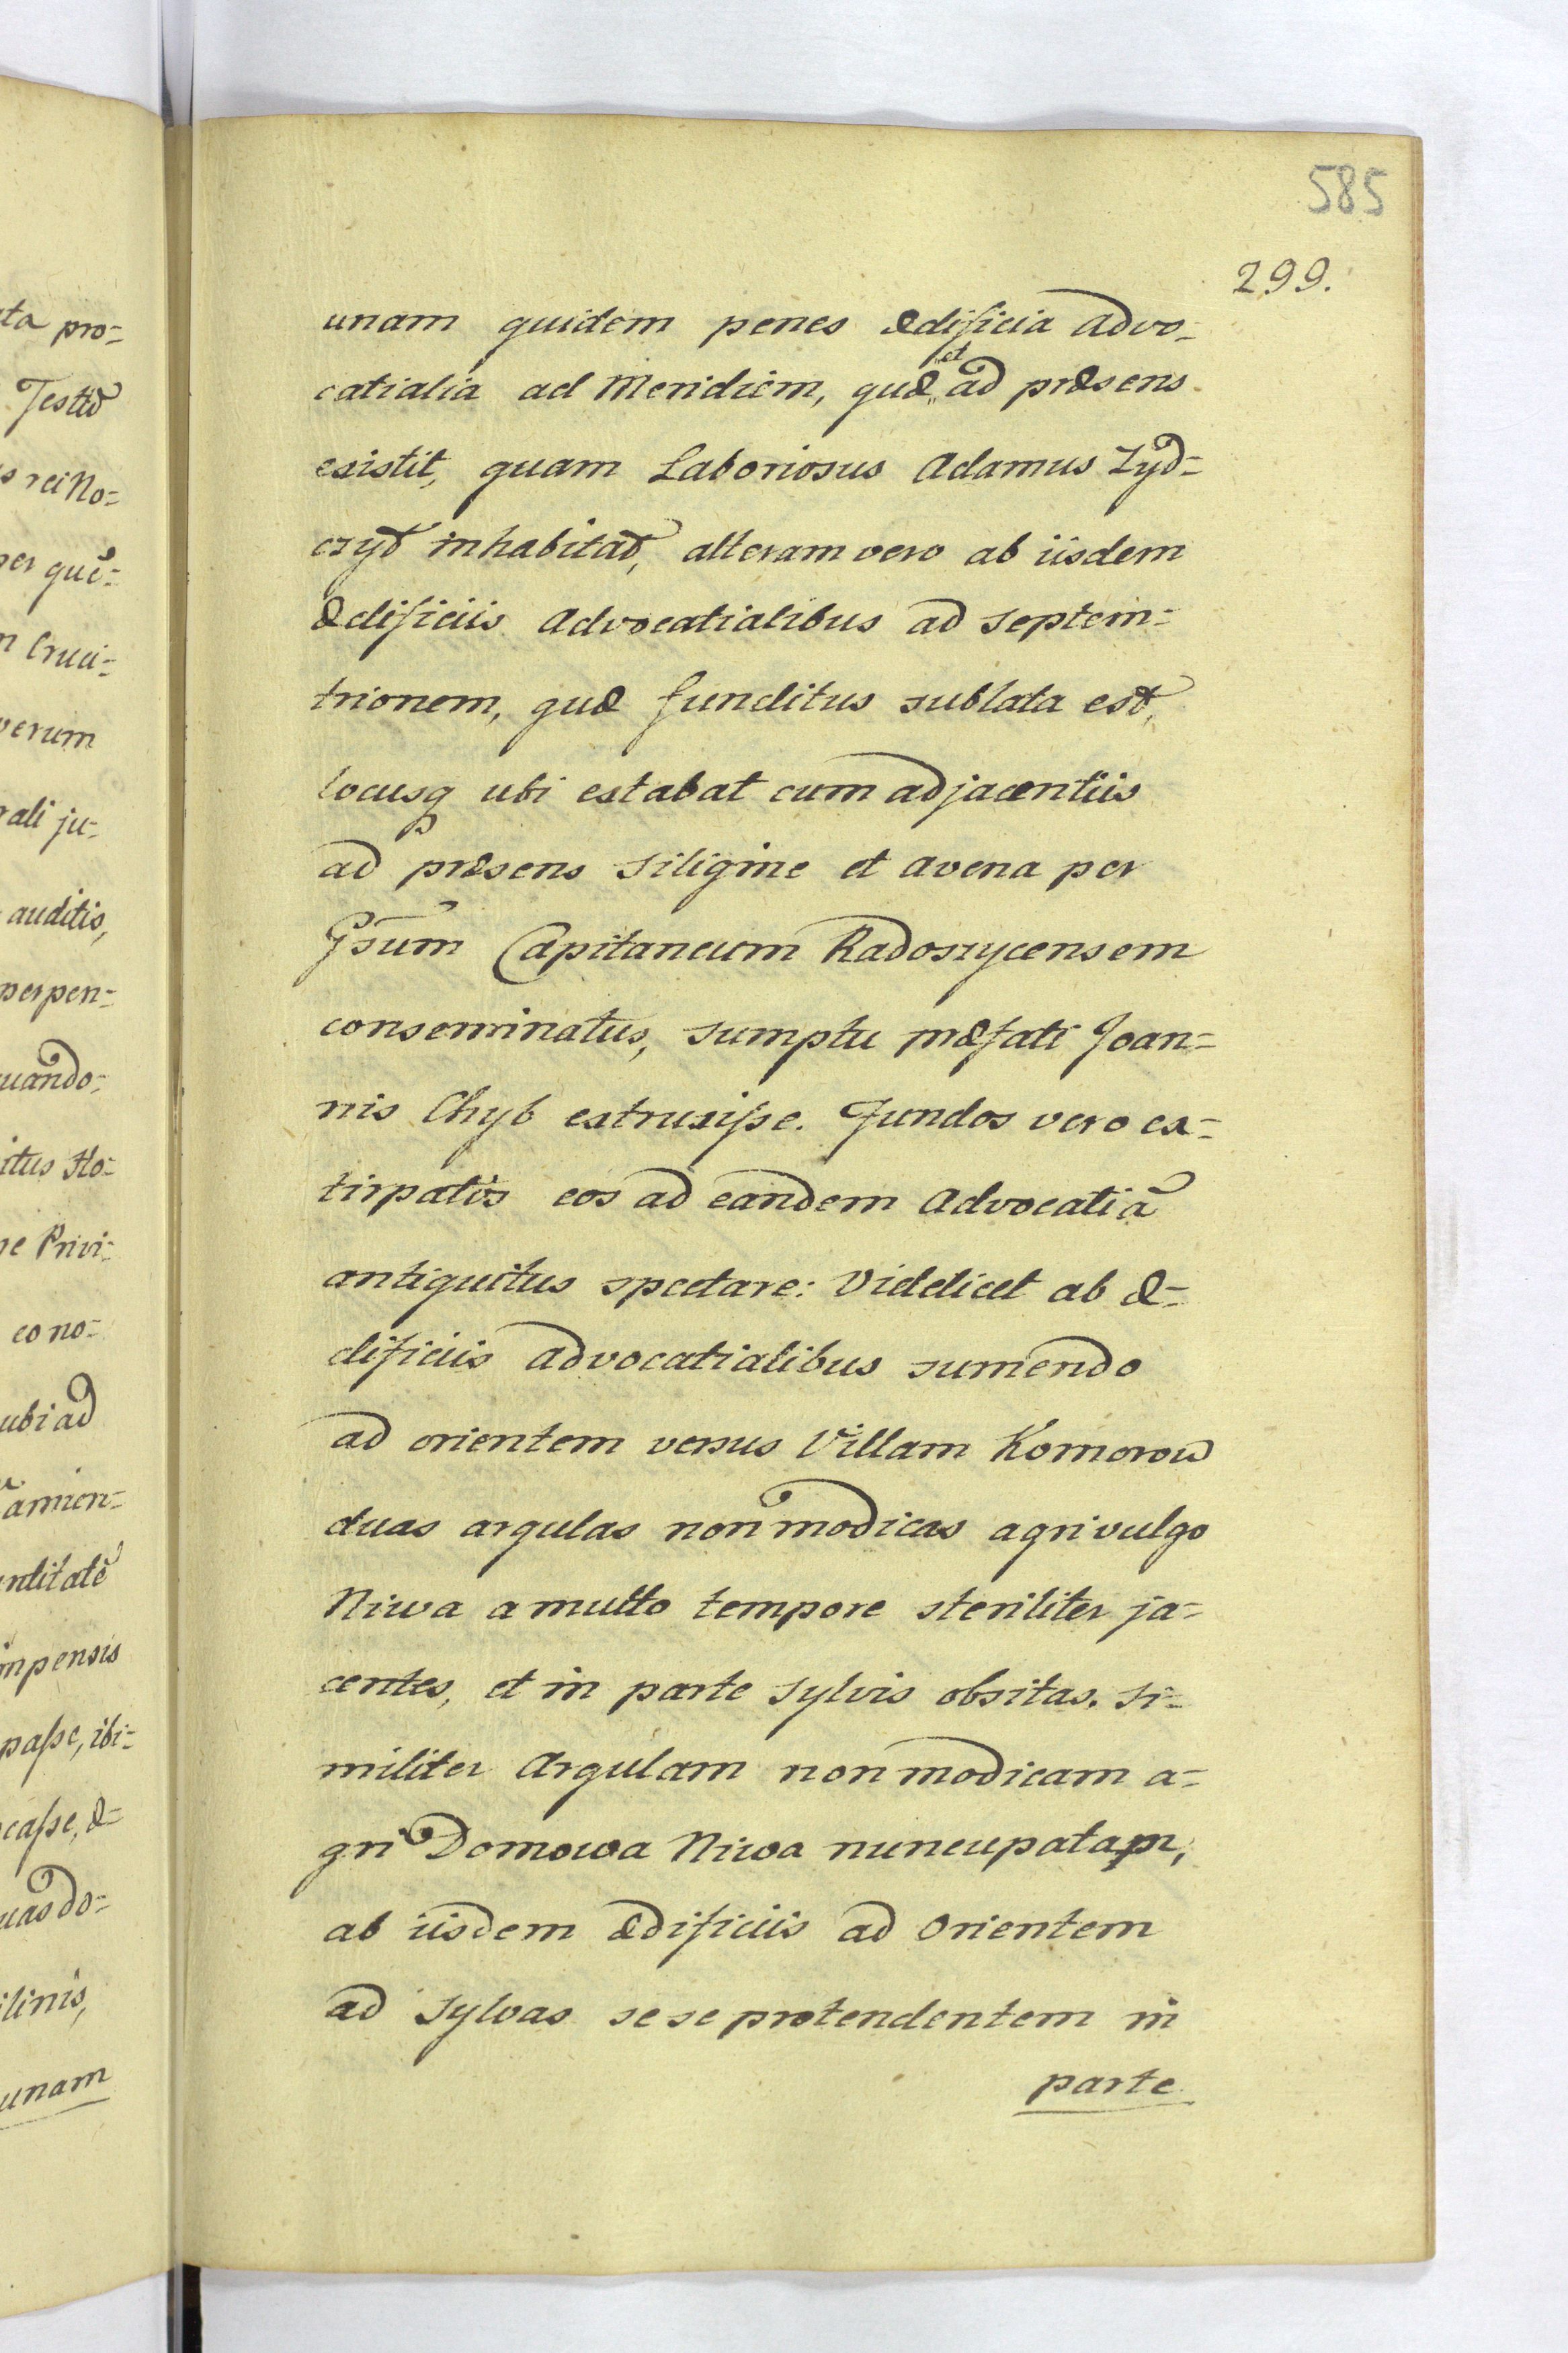 585
299.
unam quidem penes ædificia advo=
catialia ad Meridiem, quæ et ad præsens
existit, quam Laboriosus Adamus Zyd=
czyd inhabitat, alteram vero ab iisdem
ædificiis Advocatialibus ad septem=
trionem, quæ funditus sublata est,
locusq ubi extabat cum adjacentiis
ad præsens siligine et avena per
Gsum Capitaneum Radoszycensem
conseminatus, sumptu præfati Joan=
nis Chyb extruxisse. Fundos vero ex=
tirpatos eos ad eandem Advocatiã
antiquitus spectare: Videlicet ab æ=
dificiis advocatialibus sumendo
ad orientem versus Villam Komorow
duas argulas non modicas agri vulgo
Niwa a multo tempore steriliter ja=
centes, et in parte sylvis obsitas. si=
militer Argulam non modicam a=
gri Domowa Niwa nuncupatam,
ab iisdem ædificiis ad Orientem
ad sylvas sese protendentem in
parte
ta pro=
s rei No=
per quẽ=
m Cruci=
verum
rali ju=
auditis,
perpen=
uando=
itus Ho=
ne Privi=
eo no=
ubi ad
amien=
ntitatẽ
mpensis
passe, ibi=
casse, æ=
uas do=
ilinis,
unam